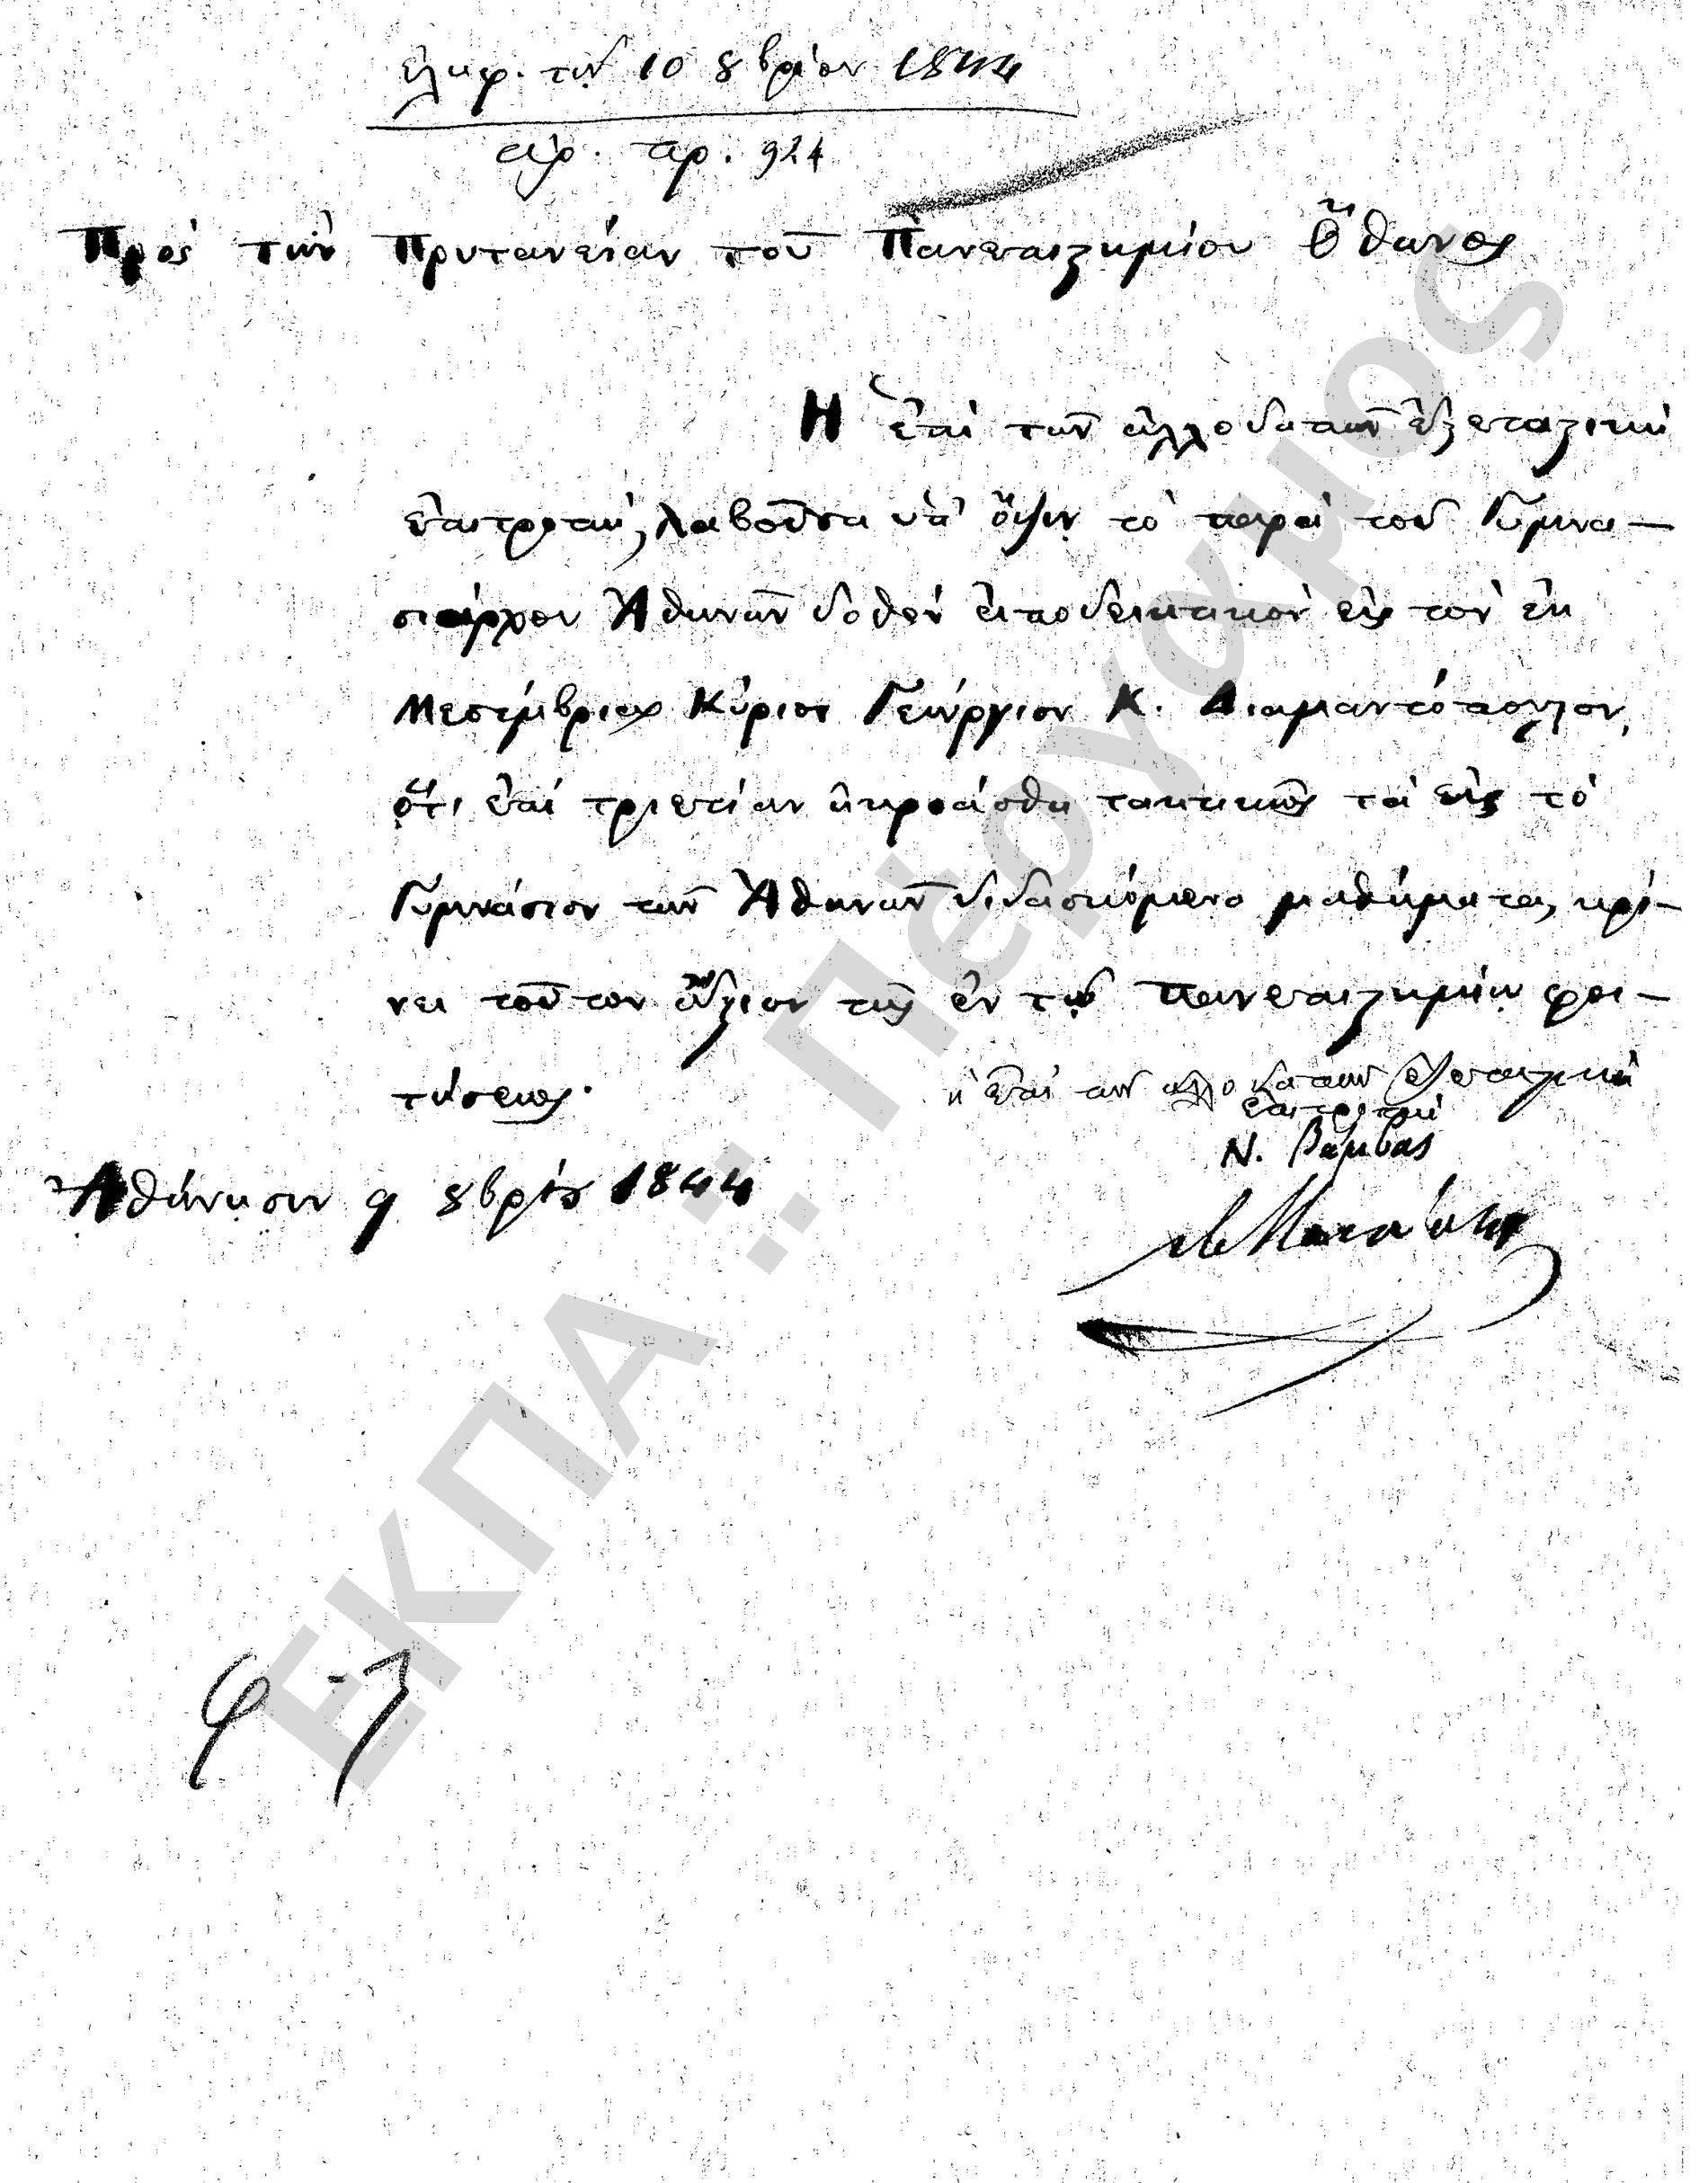 ἐλήφ. τῇ 10 8βρίου 1844
ἀρ. πρ. 924
Πρὸς τὴν Πρυτανείαν τοῦ Πανεπιστημίου Ὄθωνος
Ἡ ἐπὶ τῶν ἀλλοδαπῶν ἐξεταστικὴ
ἐπιτροπὴ, λαβοῦσα ὑπ' ὄψιν τὸ παρὰ τοῦ Γυμνα-
σιάρχου Ἀθηνῶν δοθὲν ἀποδεικτικὸν εἰς τὸν ἐκ
Μεσημβρίας Κύριον Γεώργιον Κ. Διαμαντόπουλον,
ὅτι ἐπὶ τριετίαν ἠκροάσθη τακτικῶς τὰ εἰς τὸ
Γυμνάσιον τῶν Ἀθηνῶν διδασκόμενα μαθήματα, κρί-
νει τοῦτον ἄξιον τῆς ἐν τῷ Πανεπιστημίῳ φοι-
τήσεως.
ἡ ἐπὶ τῶν ἀλλοδαπῶν ἐξεταστικὴ
ἐπιτροπὴ
Ν. Βάμβας
Ἀθήνησιν 9 8βρίου 1844
ΕΚΠΑ :: Πέργαμος